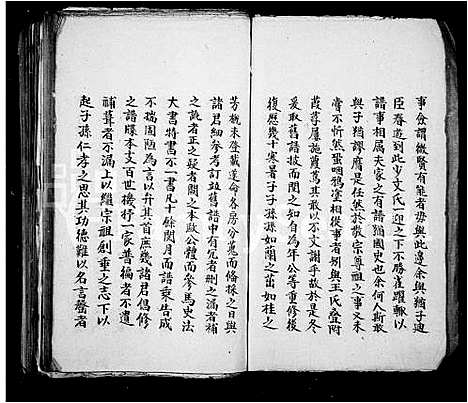 事僉謂微賢有能者毋與此邊余與猶子迪
臣春遊到此少文氏一迎之下不勝雀躍輙以
譜事相屬夫家之有譜猶國史也余何人斯敢
與子猶謬膺是任然於敬宗尊祖之事又未
嘗不忻然蚤咽鴉塗相從事者别與王氏登附
葭莩屢施葭蔦其敢以不文謝乎故於是冬
爰取舊譜披而閱之知自為年公等重修後
復歷幾十寒暑子子孫孫如蘭之茁如桂之
芳概未登載遂命各房分蒐而條採之日與
諸君細參考訂並舊譜中有冗者删之漏者補
之訛者正之疑者闕之本歐公體式序馬史法
大書特書不一書凡十餘閱月而譜乘告成
不揣固陋為言以弁其首庶幾諸君倡修
之譜牒本支百世機杼一家普徧者不遺
補葺者不漏上以繼宗祖創垂之志下以
起子孫仁孝之思其功德難以名言譽者